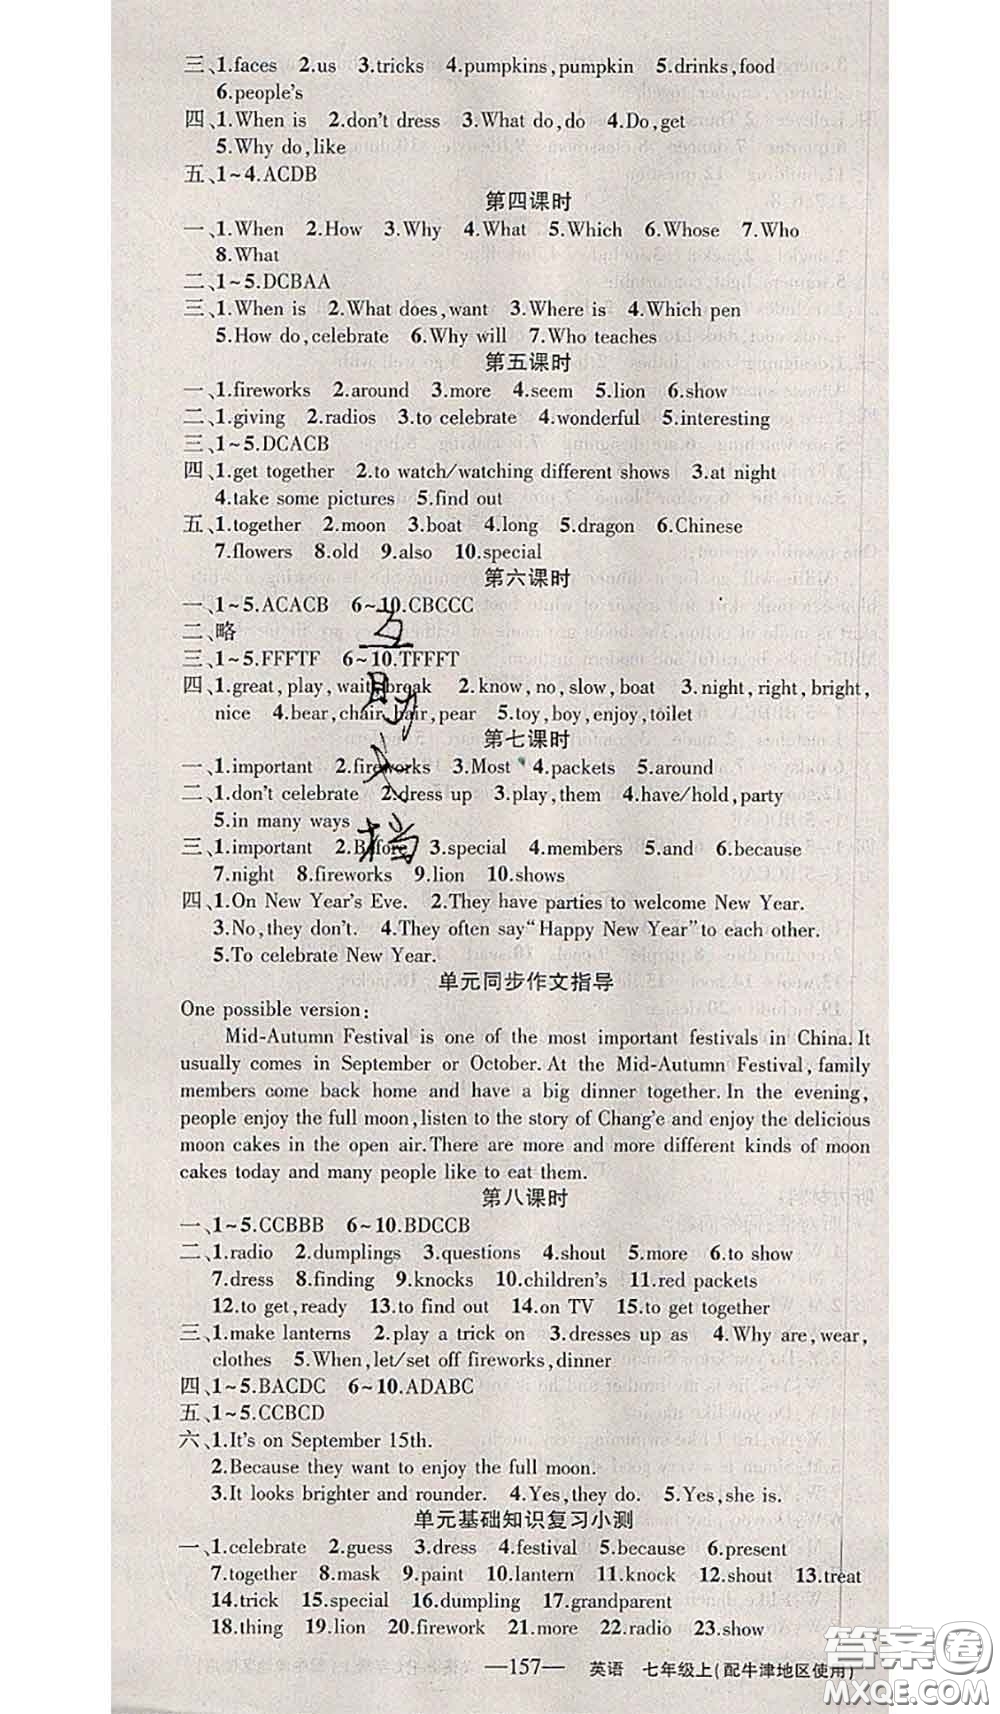 三、1.faces 2.us 3.tricks 4.pumpkins,pumpkin 5.drinks,food
6.people's
四、1.When is 2.don't dress 3.What do,do 4.Do,get
5.Why do,like
五、1~4.ACDB
第四课时
一、1.When 2.How 3.Why 4.What 5.Which 6.Whose 7.Who
8.What
二、1~5.DCBAA
三、1.When is 2.What does,want 3.Where is 4.Which pen
5.How do,celebrate 6.Why will 7.Who teaches
第五课时
一、1.fireworks 2.around 3.more 4.seem 5.lion 6.show
二、1.giving 2.radios 3.to celebrate 4.wonderful 5.interesting
三、1~5.DCACB
四、1.get together 2.to watch/watching different shows 3.at night
4.take some pictures 5.find out
五、1.together 2.moon 3.boat 4.long 5.dragon 6.Chinese
7.flowers 8.old 9.also 10.special
第六课时
一、1~5.ACACB 6~10.CBCCC
二、略
三、1~5.FFFTF 6~10.TFFFT
四、1.great,play,wait,break 2.know,no,slow,boat 3.night,right,bright,
nice 4.bear,chair,hair,pear 5.toy,boy,enjoy,toilet
第七课时
一、1.important 2.fireworks 3.Most 4.packets 5.around
二、1.don't celebrate 2.dress up 3.play,them 4.have/hold,party
5.in many ways
三、1.important 2.Before 3.special 4.members 5.and 6.because
7.night 8.fireworks 9.lion 10.shows
四、1.On New Year's Eve. 2.They have parties to welcome New Year.
3.No,they don't. 4.They often say“Happy New Year”to each other.
5.To celebrate New Year.
互助文档
单元同步作文指导
One possible version:
Mid-Autumn Festival is one of the most important festivals in China. It
usually comes in September or October. At the Mid-Autumn Festival, family
members come back home and have a big dinner together. In the evening,
people enjoy the full moon,listen to the story of Chang'e and enjoy the delicious
moon cakes in the open air. There are more and more different kinds of moon
cakes today and many people like to eat them.
第八课时
一、1~5.CCBBB 6~10.BDCCB
二、1.radio 2.dumplings 3.questions 4.shout 5.more 6.to show
7.dress 8.finding 9.knocks 10.children's 11.red packets
12.to get,ready 13.to find out 14.on TV 15.to get together
三、1.make lanterns 2.play a trick on 3.dresses up as 4.Why are,wear,
clothes 5.When,let/set off fireworks,dinner
四、1~5.BACDC 6~10.ADABC
五、1~5.CCBCD
六、1.It's on September 15th.
2.Because they want to enjoy the full moon.
3.It looks brighter and rounder. 4.Yes,they do. 5.Yes,she is.
单元基础知识复习小测
一、1.celebrate 2.guess 3.dress 4.festival 5.because 6.present
7.together 8.mask 9.paint 10.lantern 11.knock 12.shout 13.treat
14.trick 15.special 16.dumpling 17.grandparent
18.thing 19.lion 20.firework 21.more 22.radio 23.show
—157— 英语 七年级上(配牛津地区使用)
答案圈
MXQE.COM